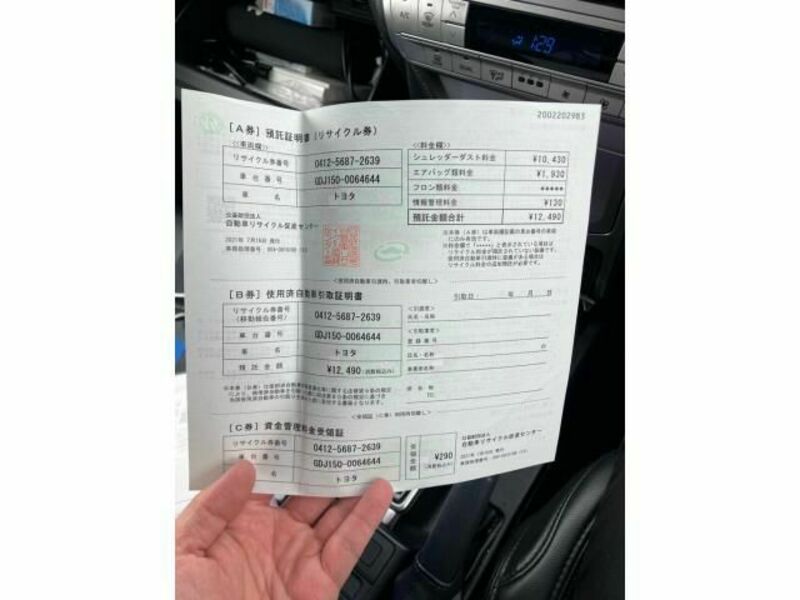 1:29
A/C
2002202983
[A券] 預託証明書(リサイクル券)
≪車両欄≫
リサイクル券番号 0412-5687-2639
車台番号 GDJ150-0064644
車名 トヨタ
≪料金欄≫
シュレッダーダスト料金 ¥10,430
エアバッグ類料金 ¥1,930
フロン類料金 *****
情報管理料金 ¥130
預託金額合計 ¥12,490
公益財団法人
自動車リサイクル促進センター
2021年 7月16日 発行
[B券] 使用済自動車引取証明書
引取日: 年 月 日
リサイクル券番号
(移動報告番号) 0412-5687-2639
車台番号 GDJ150-0064644
車名 トヨタ
預託金額 ¥12,490(消費税込み)
氏名・名称
登録番号
氏名・名称
事業所名称
TEL
[C券] 資金管理料金受領証
リサイクル券番号 0412-5687-2639
車台番号 GDJ150-0064644
名 トヨタ
受領金額 ¥290
(消費税込み)
公益財団法人
自動車リサイクル促進センター